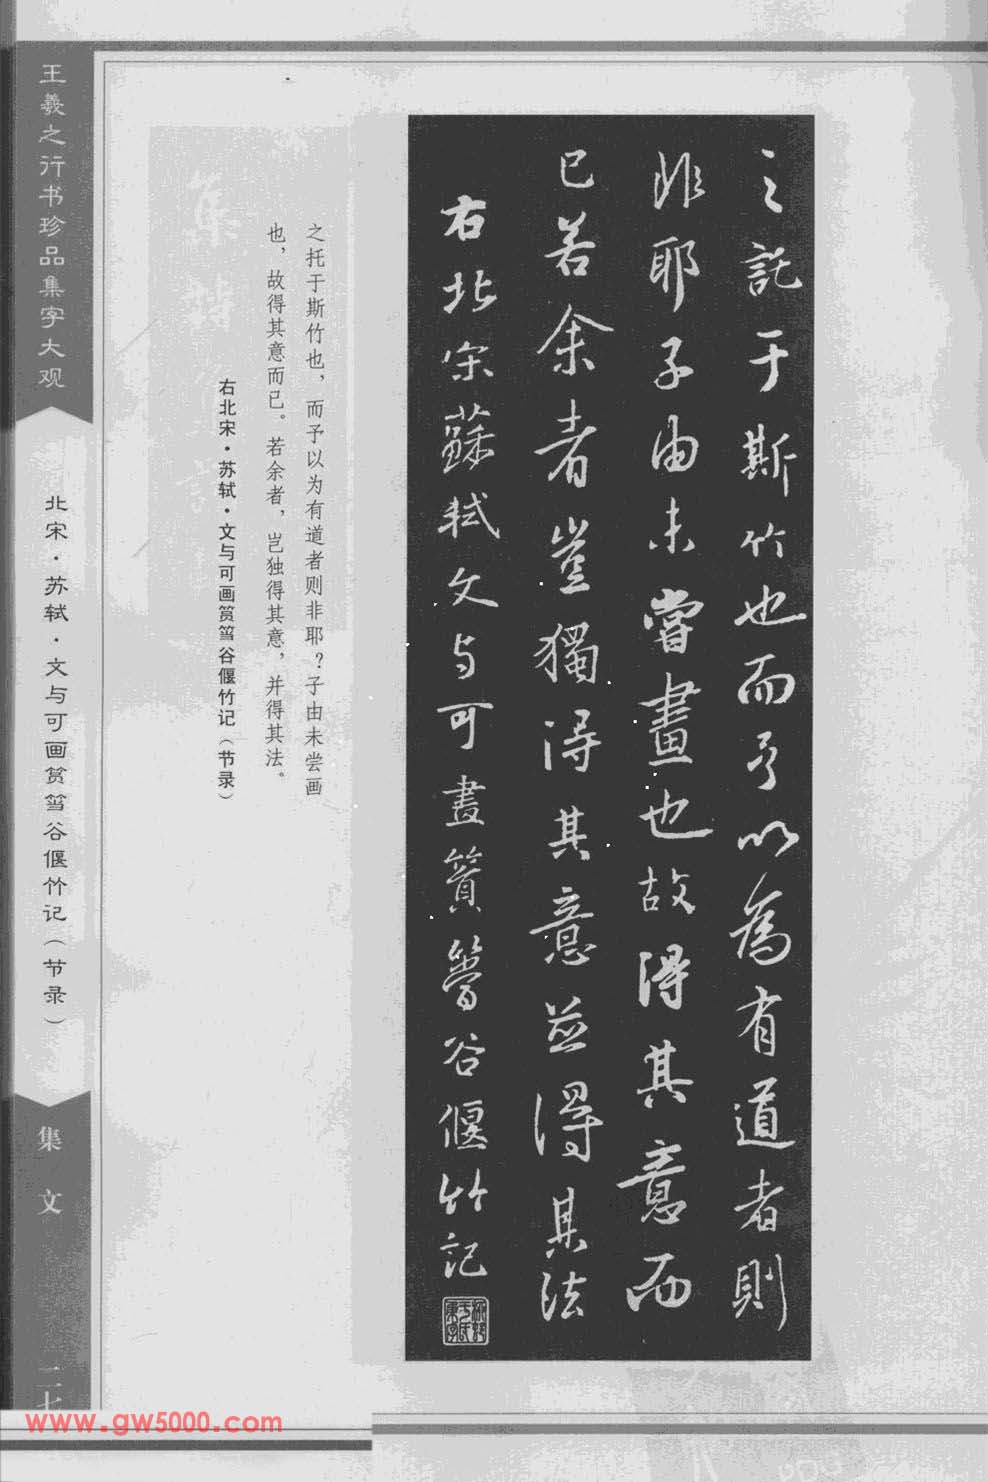 之託于斯竹也而予以為有道者則
非耶子由未嘗畫也故得其意而
已若余者豈獨得其意並得其法
右北宋蘇軾文与可畫篔簹谷偃竹記
之托于斯竹也，而予以为有道者则非耶？子由未尝画
也，故得其意而已。若余者，岂独得其意，并得其法。
右北宋·苏轼·文与可画筼筜谷偃竹记（节录）
王羲之行书珍品集字大观
北宋·苏轼·文与可画筼筜谷偃竹记（节录）
集文
二七
www.gw5000.com